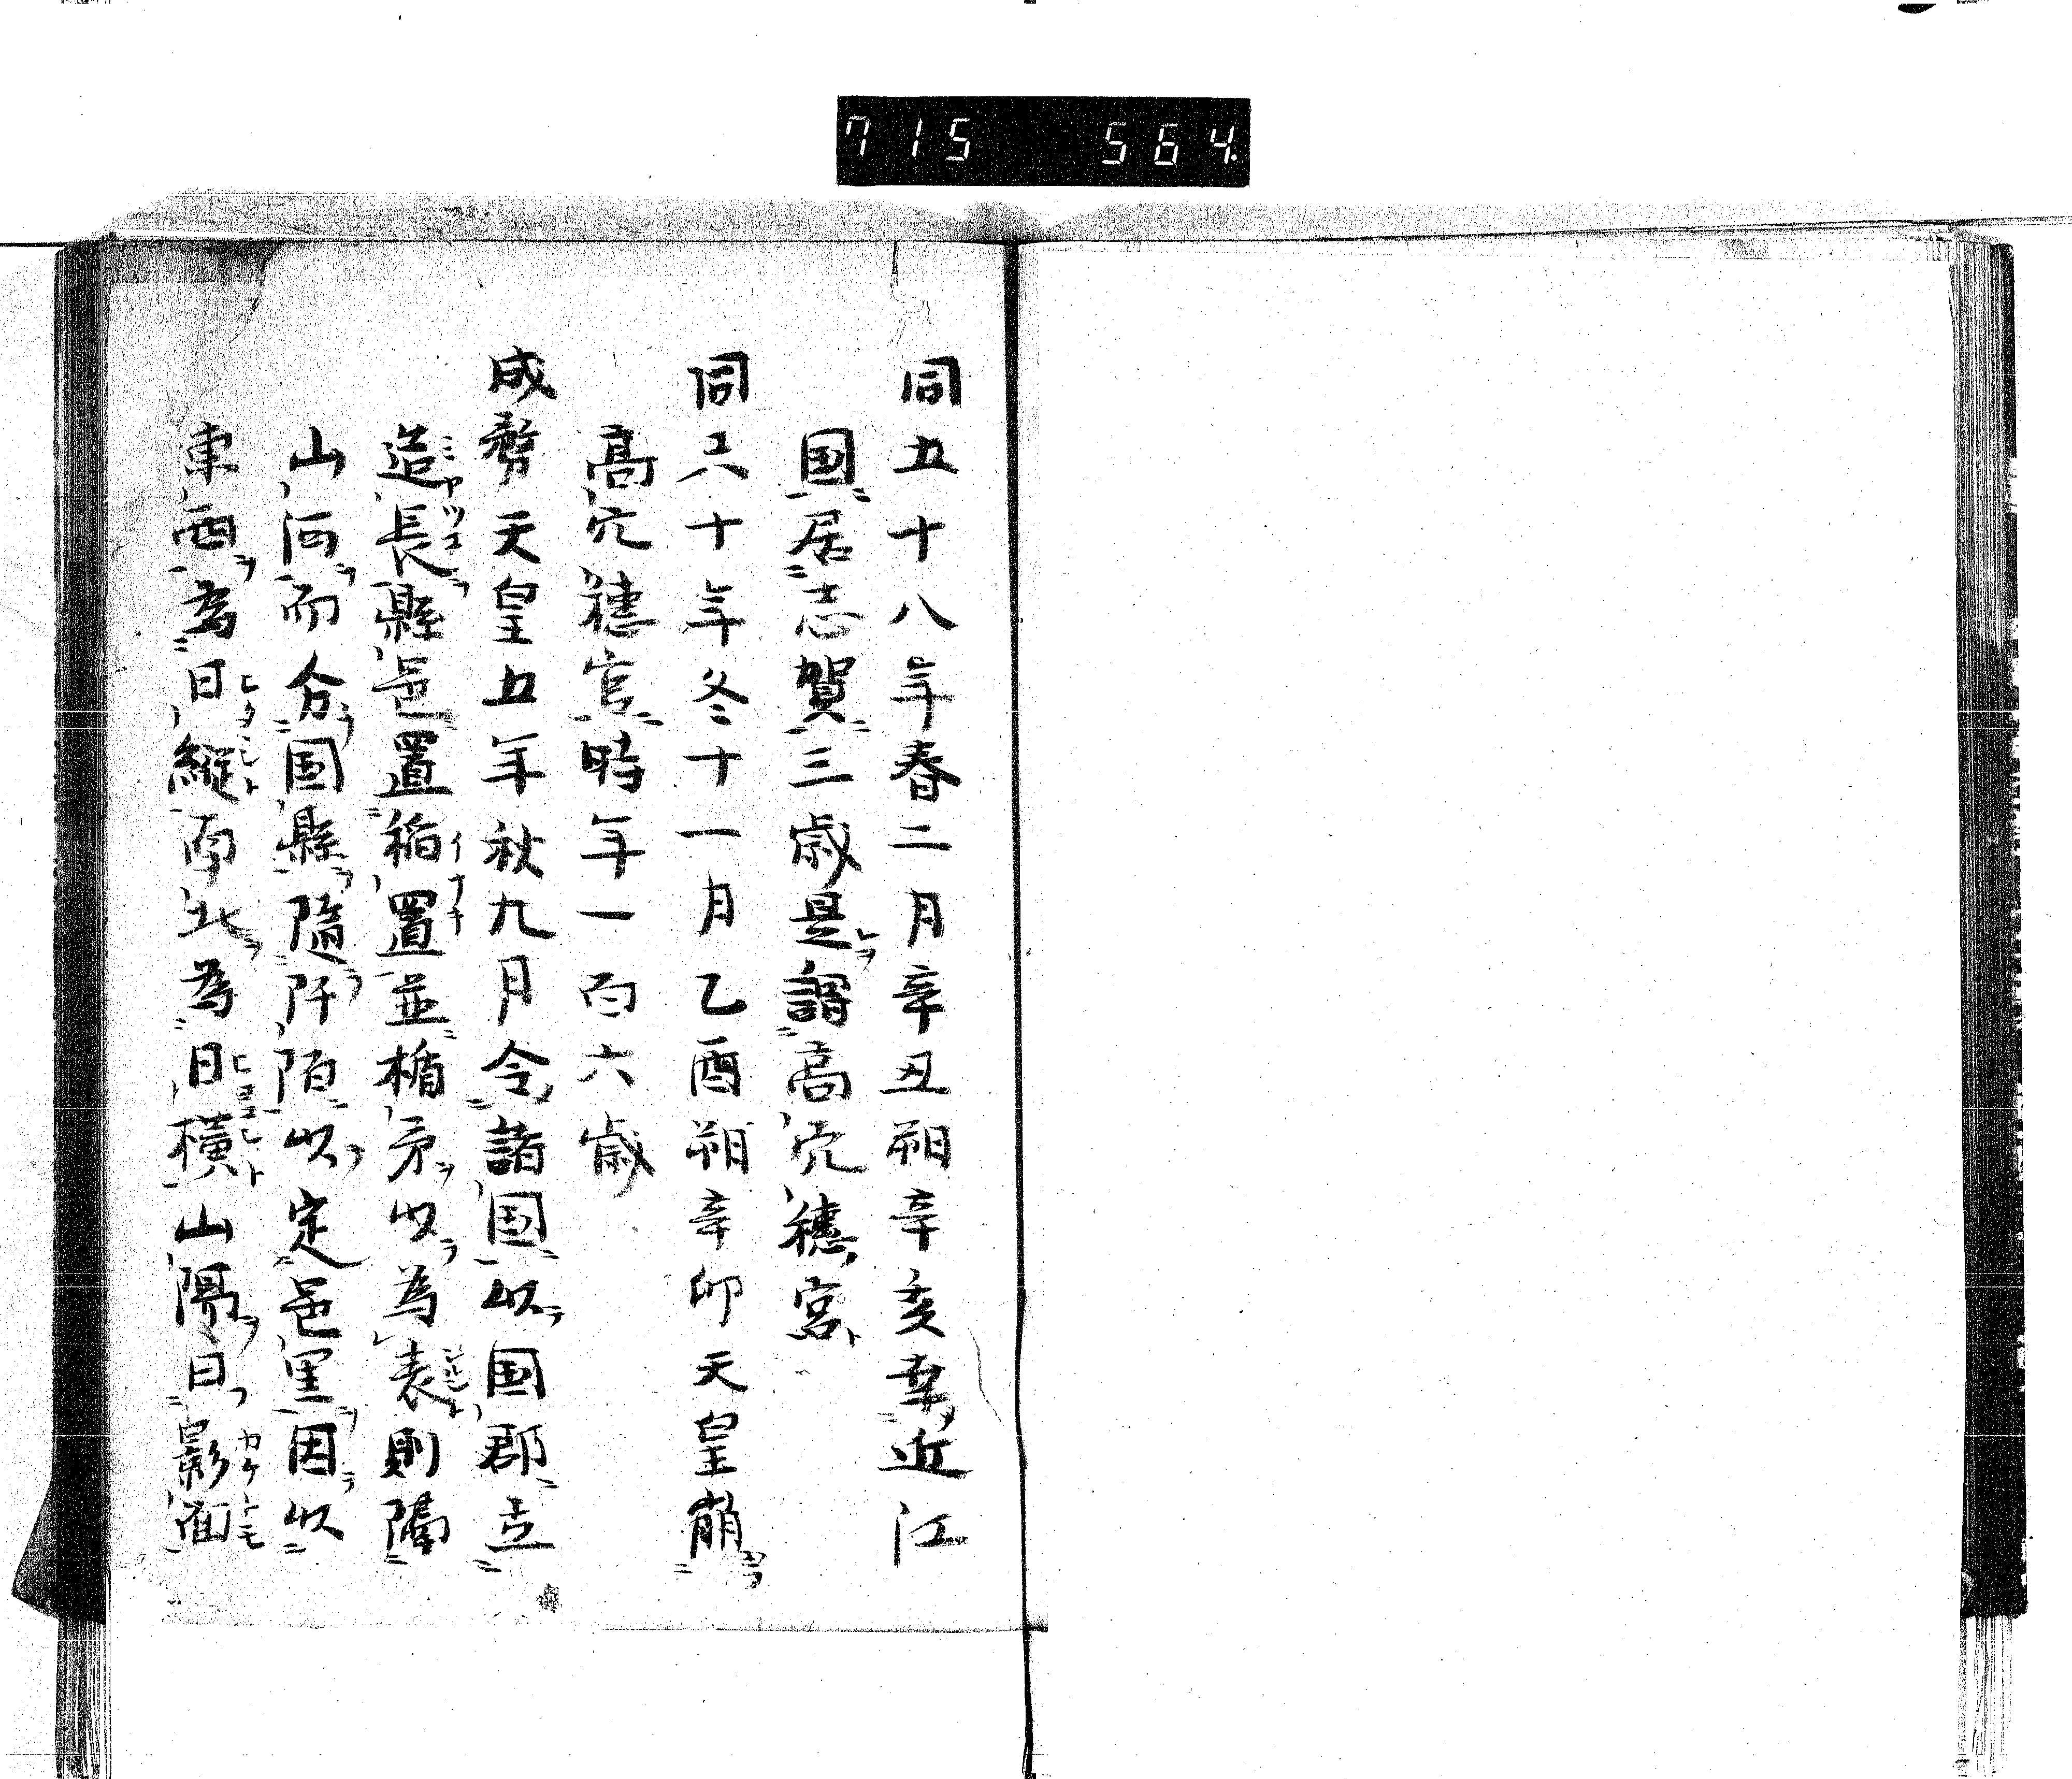 715 564
同五十八年春二月辛丑朔辛亥幸近江
国居志賀三歳是謂高穴穂宮
同六十年冬十一月乙酉朔辛卯天皇崩
高穴穂宮時年一百六歳
成務天皇五年秋九月令諸国以国郡立
造長縣邑置稲置並楯矛以為表則隔
山河而分国縣隨阡陌以定邑里因以
東西為日縦南北為日横山陽曰影面